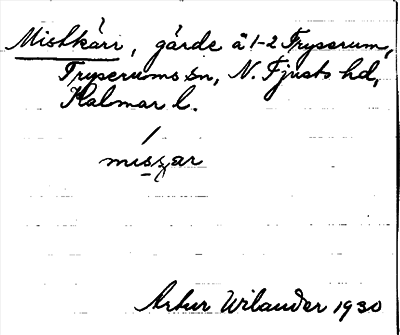 Mistkärr, gärde å 1-2 Tryserum,
Tryserums sn, N. Tjusts hd,
Kalmar l.
Artur Wilander 1930